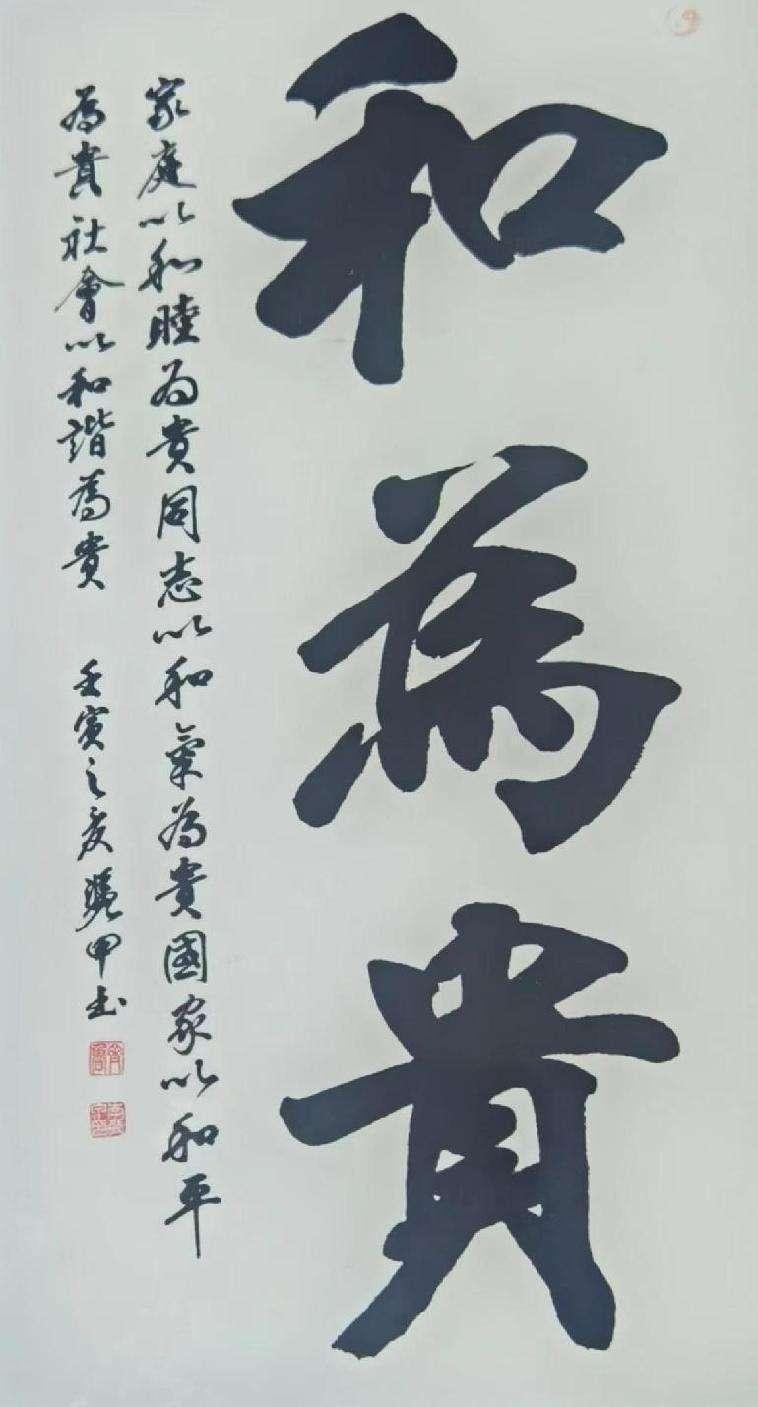 和為貴
家庭以和睦为貴同志以和氣为貴國家以和平
为貴社會以和諧為貴 壬寅之夏 甲书